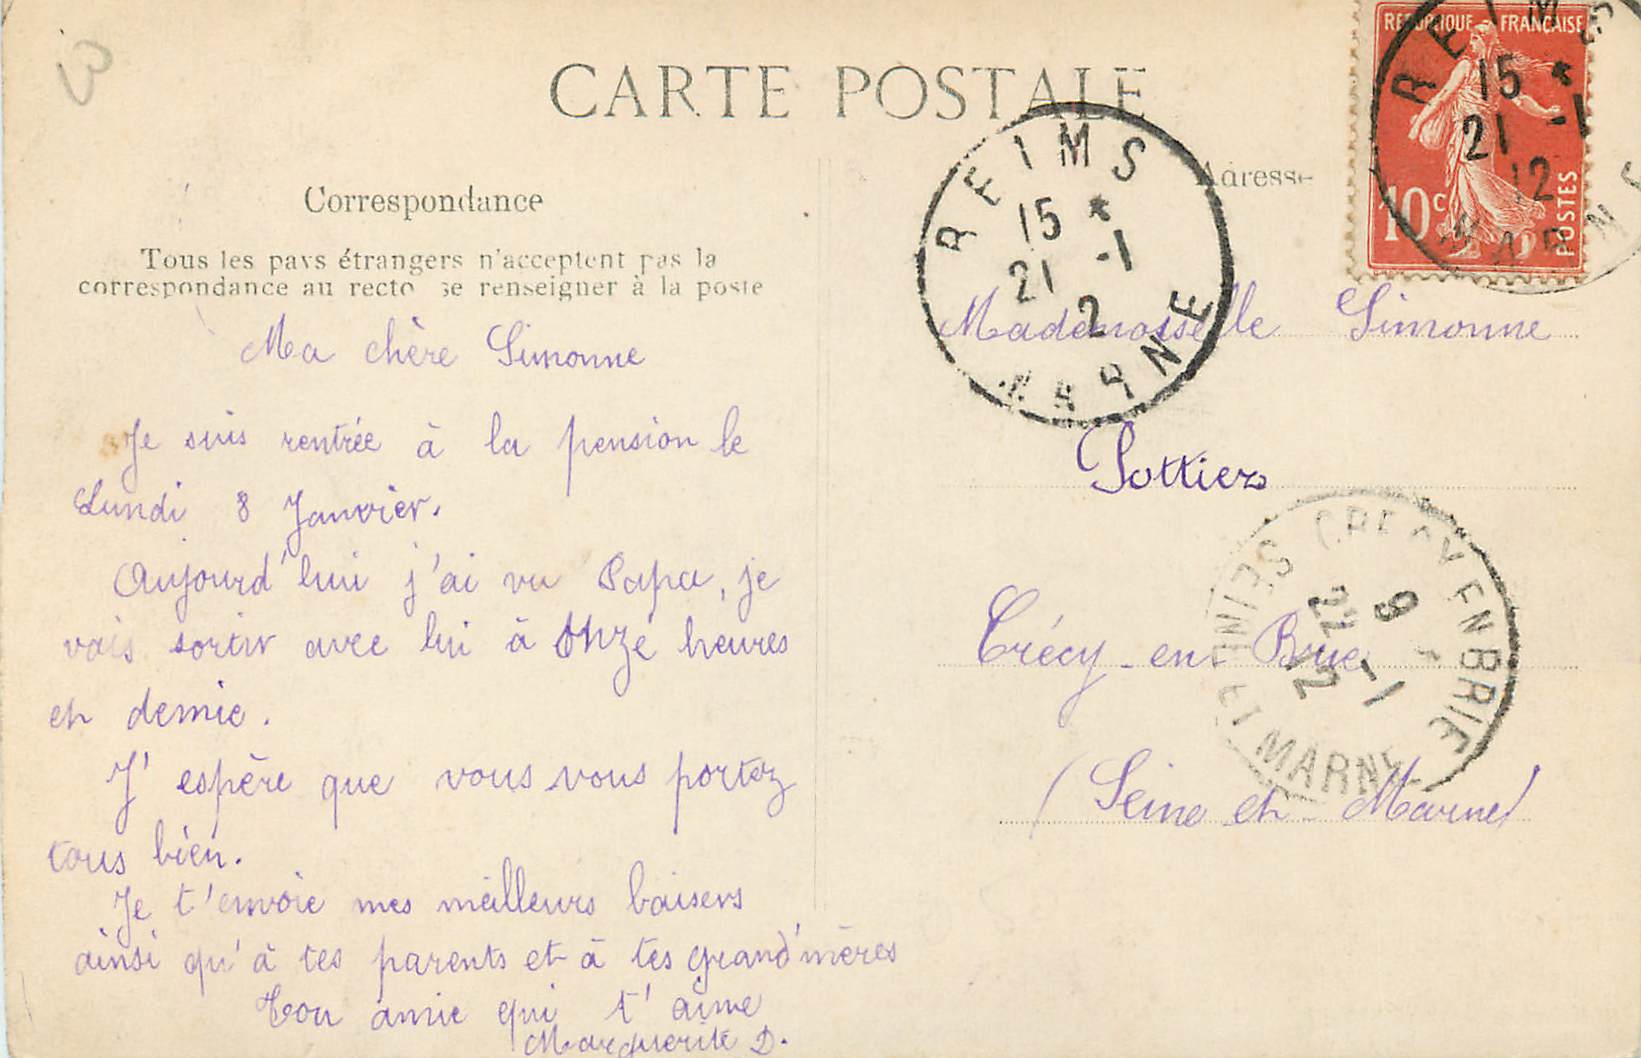 CARTE POSTALE
Correspondance
Tous les pays étrangers n'acceptent pas la
correspondance au recto se renseigner à la poste
Ma chère Simonne
Je suis rentrée à la pension le
Lundi 8 Janvier.
Aujourd'hui j'ai vu Papa, je
vais sortir avec lui à onze heures
et demie.
J'espère que vous vous portez
tous bien.
Je t'envoie mes meilleurs baisers
ainsi qu'à tes parents et à tes grand'mères
Ton amie qui t'aime
Marguerite D.
Adresse
Mademoiselle Simonne
Pottier
Crécy-en-Brie
(Seine et-Marne)
REPUBLIQUE FRANÇAISE
10c
POSTES
REIMS
15 *
21 -1
12
MARNE
REIMS
15 *
21 -1
2
MARNE
CRECY EN BRIE
9
22 -1
12
SEINE ET MARNE